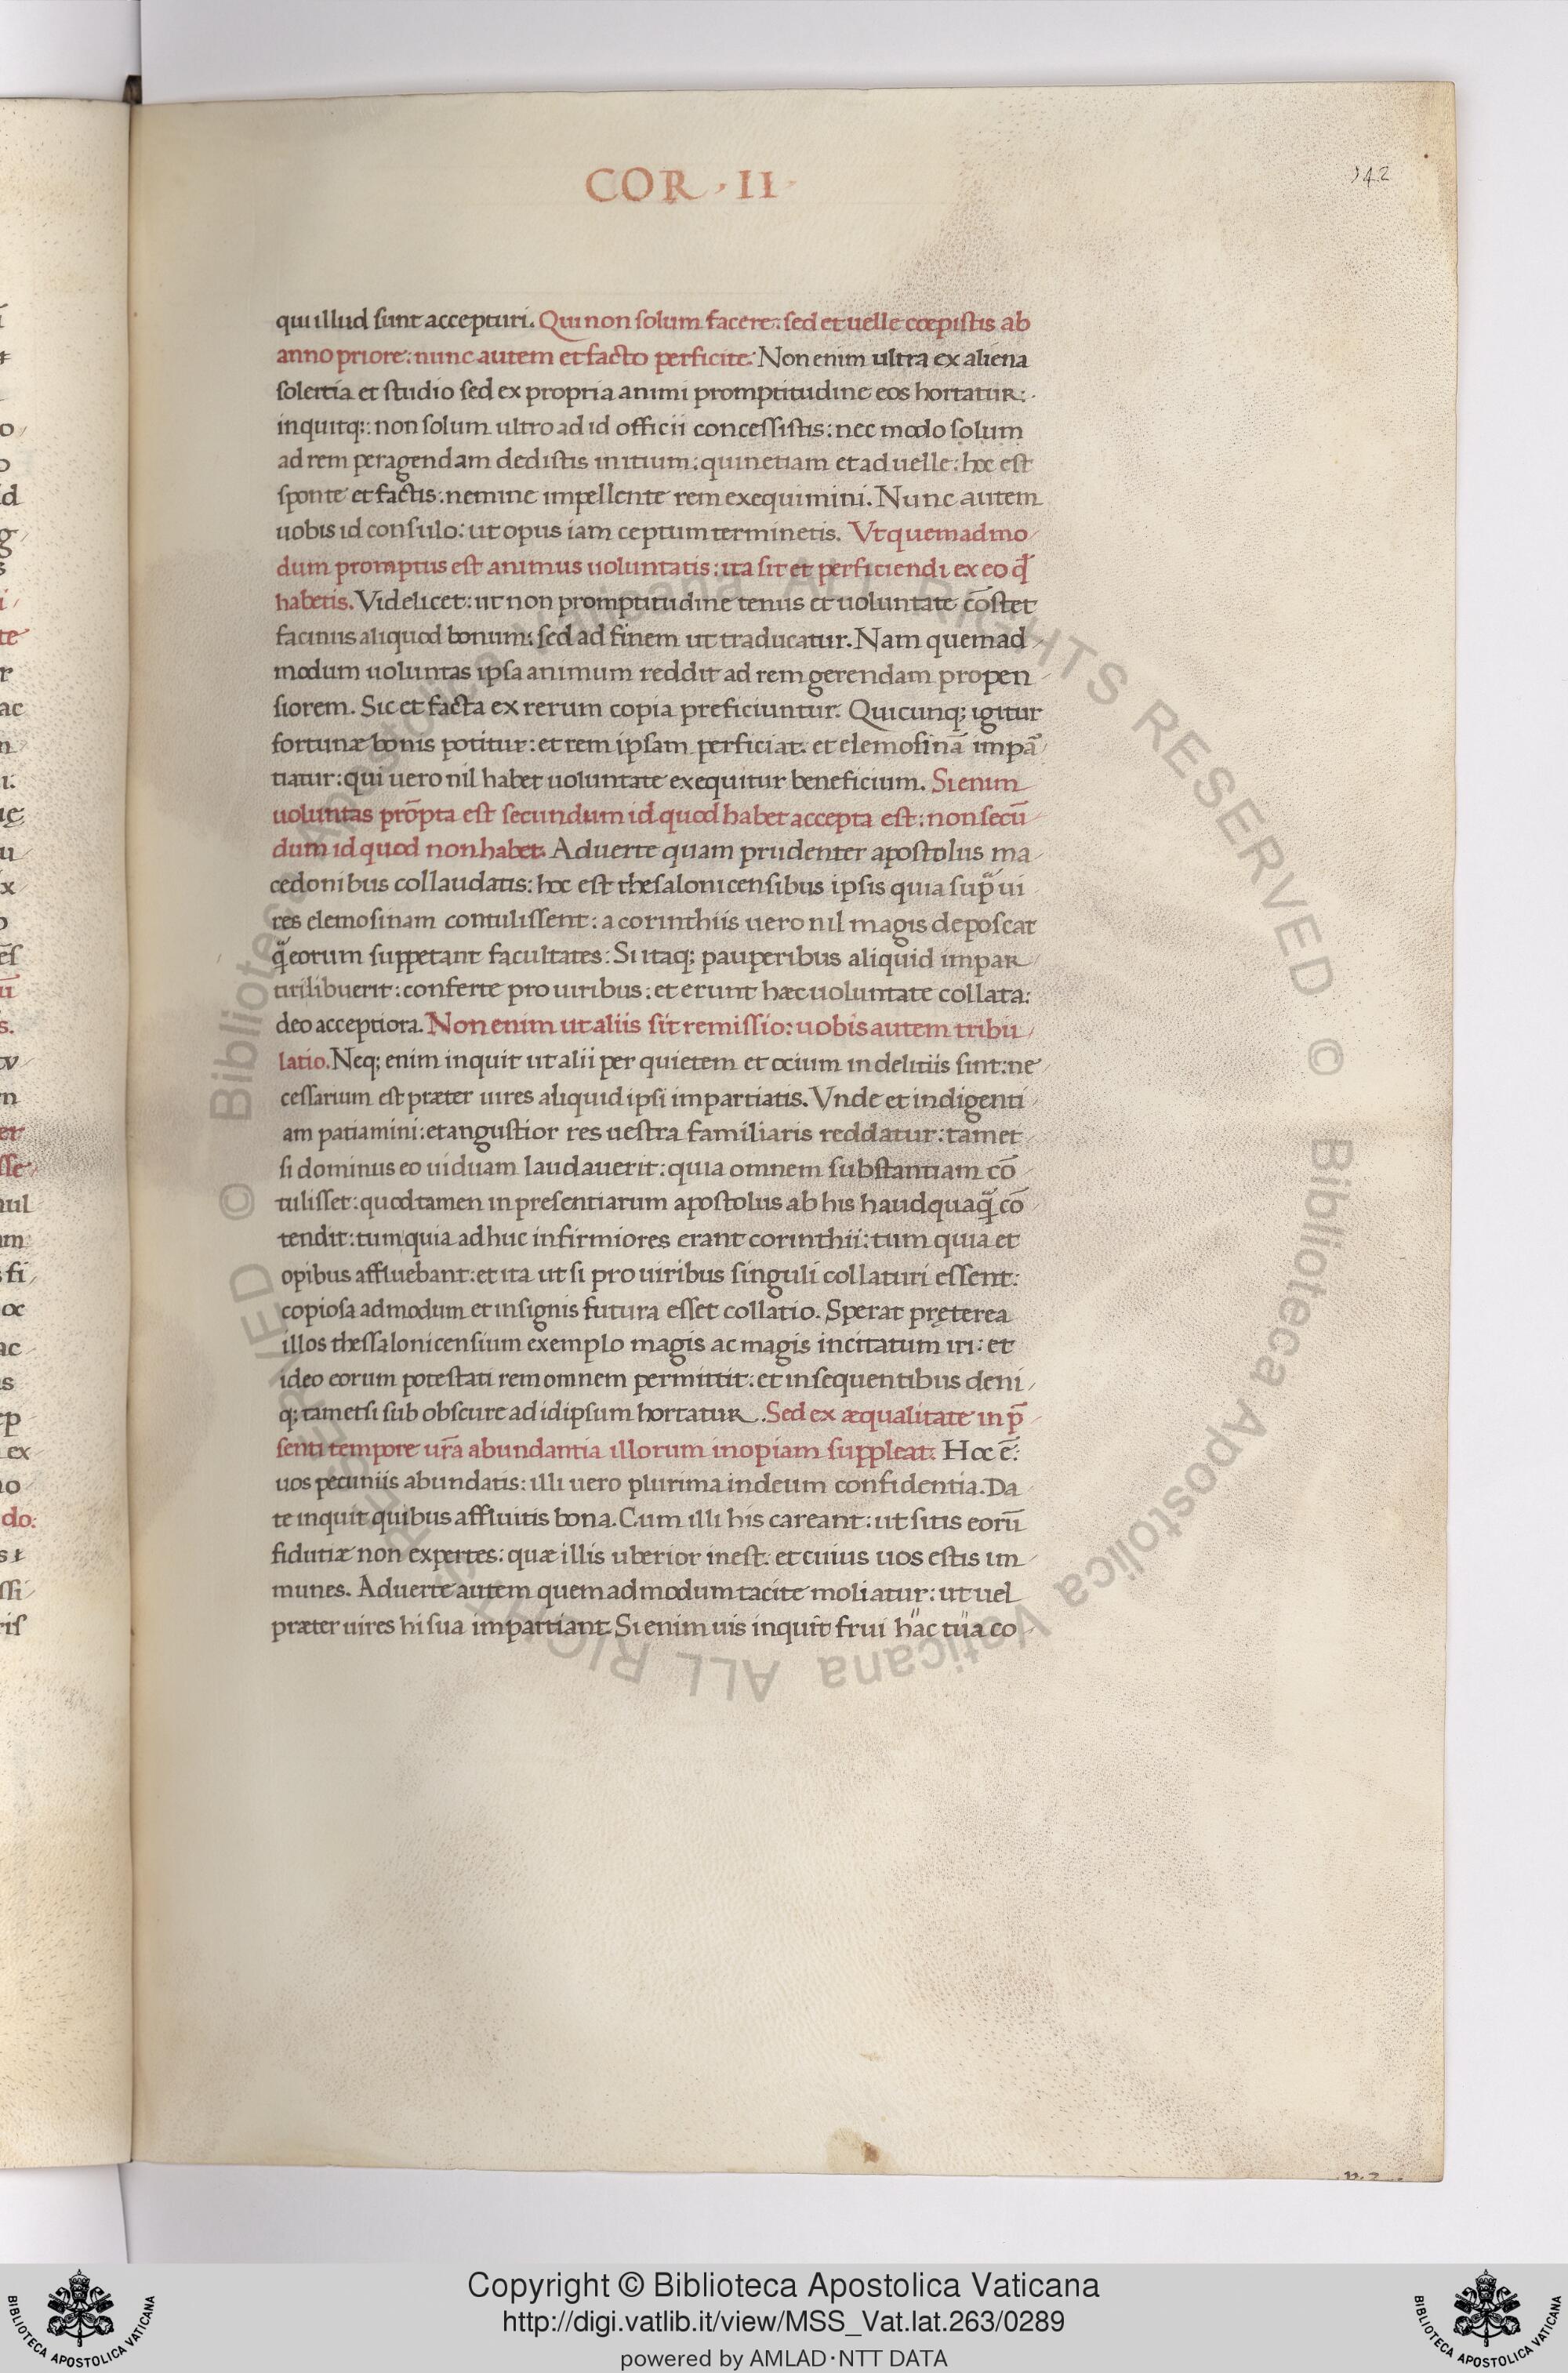 COR · II ·
142
qui illud sunt accepturi. Qui non solum facere: sed et uelle cœpistis ab
anno priore: nunc autem et facto perficite. Non enim ultra ex aliena
solertia et studio sed ex propria animi promptitudine eos hortatur:
inquitq;: non solum ultro ad id officii concessistis: nec modo solum
ad rem peragendam dedistis initium: quinetiam et ad uelle: hoc est
sponte et factis: nemine impellente rem exequimini. Nunc autem
uobis id consulo: ut opus iam ceptum terminetis. Vt quemadmo/
dum promptus est animus uoluntatis: ita sit et perficiendi ex eo qđ
habetis. Videlicet: ut non promptitudine tenus et uoluntate cōstet
facinus aliquod bonum: sed ad finem ut traducatur. Nam quemad/
modum uoluntas ipsa animum reddit ad rem gerendam propen/
siorem. Sic et facta ex rerum copia preficiuntur. Quicunq; igitur
fortunæ bonis potitur: et rem ipsam perficiat: et elemosinā impā/
tiatur: qui uero nil habet uoluntate exequitur beneficium. Si enim
uoluntas prōpta est secundum id quod habet accepta est: non secū/
dum id quod non habet. Aduerte quam prudenter apostolus ma/
cedonibus collaudatis: hoc est thesalonicensibus ipsis quia sup̃ ui
res elemosinam contulissent: a corinthiis uero nil magis deposcat
q̃ eorum suppetant facultates: Si itaq; pauperibus aliquid impar/
tiri libuerit: conferte pro uiribus: et erunt hæc uoluntate collata:
deo acceptiora. Non enim ut aliis sit remissio: uobis autem tribu/
latio. Neq; enim inquit ut alii per quietem et ocium in delitiis sint: ne/
cessarium est præter uires aliquid ipsi impartiatis. Vnde et indigenti/
am patiamini: et angustior res uestra familiaris reddatur: tamet/
si dominus eo uiduam laudauerit: quia omnem substantiam cō/
tulisset: quod tamen in presentiarum apostolus ab his haudquaq̃ cō/
tendit: tum quia adhuc infirmiores erant corinthii: tum quia et
opibus affluebant: et ita ut si pro uiribus singuli collaturi essent:
copiosa admodum et insignis futura esset collatio. Sperat pręterea
illos thessalonicensium exemplo magis ac magis incitatum iri: et
ideo eorum potestati rem omnem permittit: et in sequentibus deni/
q; tametsi sub obscure ad idipsum hortatur. Sed ex æqualitate in p̃/
senti tempore ur̄a abundantia illorum inopiam suppleat. Hoc ē:
uos pecuniis abundatis: illi uero plurima in deum confidentia. Da
te inquit quibus affluitis bona. Cum illi his careant: ut sitis eorū
fidutiæ non expertes: quæ illis uberior inest: et cuius uos estis im/
munes. Aduerte autem quemadmodum tacite moliatur: ut uel
præter uires hi sua impartiant. Si enim uis inquit frui hac tua co/
© Biblioteca Apostolica Vaticana ALL RIGHTS RESERVED
© Biblioteca Apostolica Vaticana ALL RIGHTS RESERVED
Copyright © Biblioteca Apostolica Vaticana
http://digi.vatlib.it/view/MSS_Vat.lat.263/0289
powered by AMLAD·NTT DATA
BIBLIOTECA APOSTOLICA VATICANA
BIBLIOTECA APOSTOLICA VATICANA